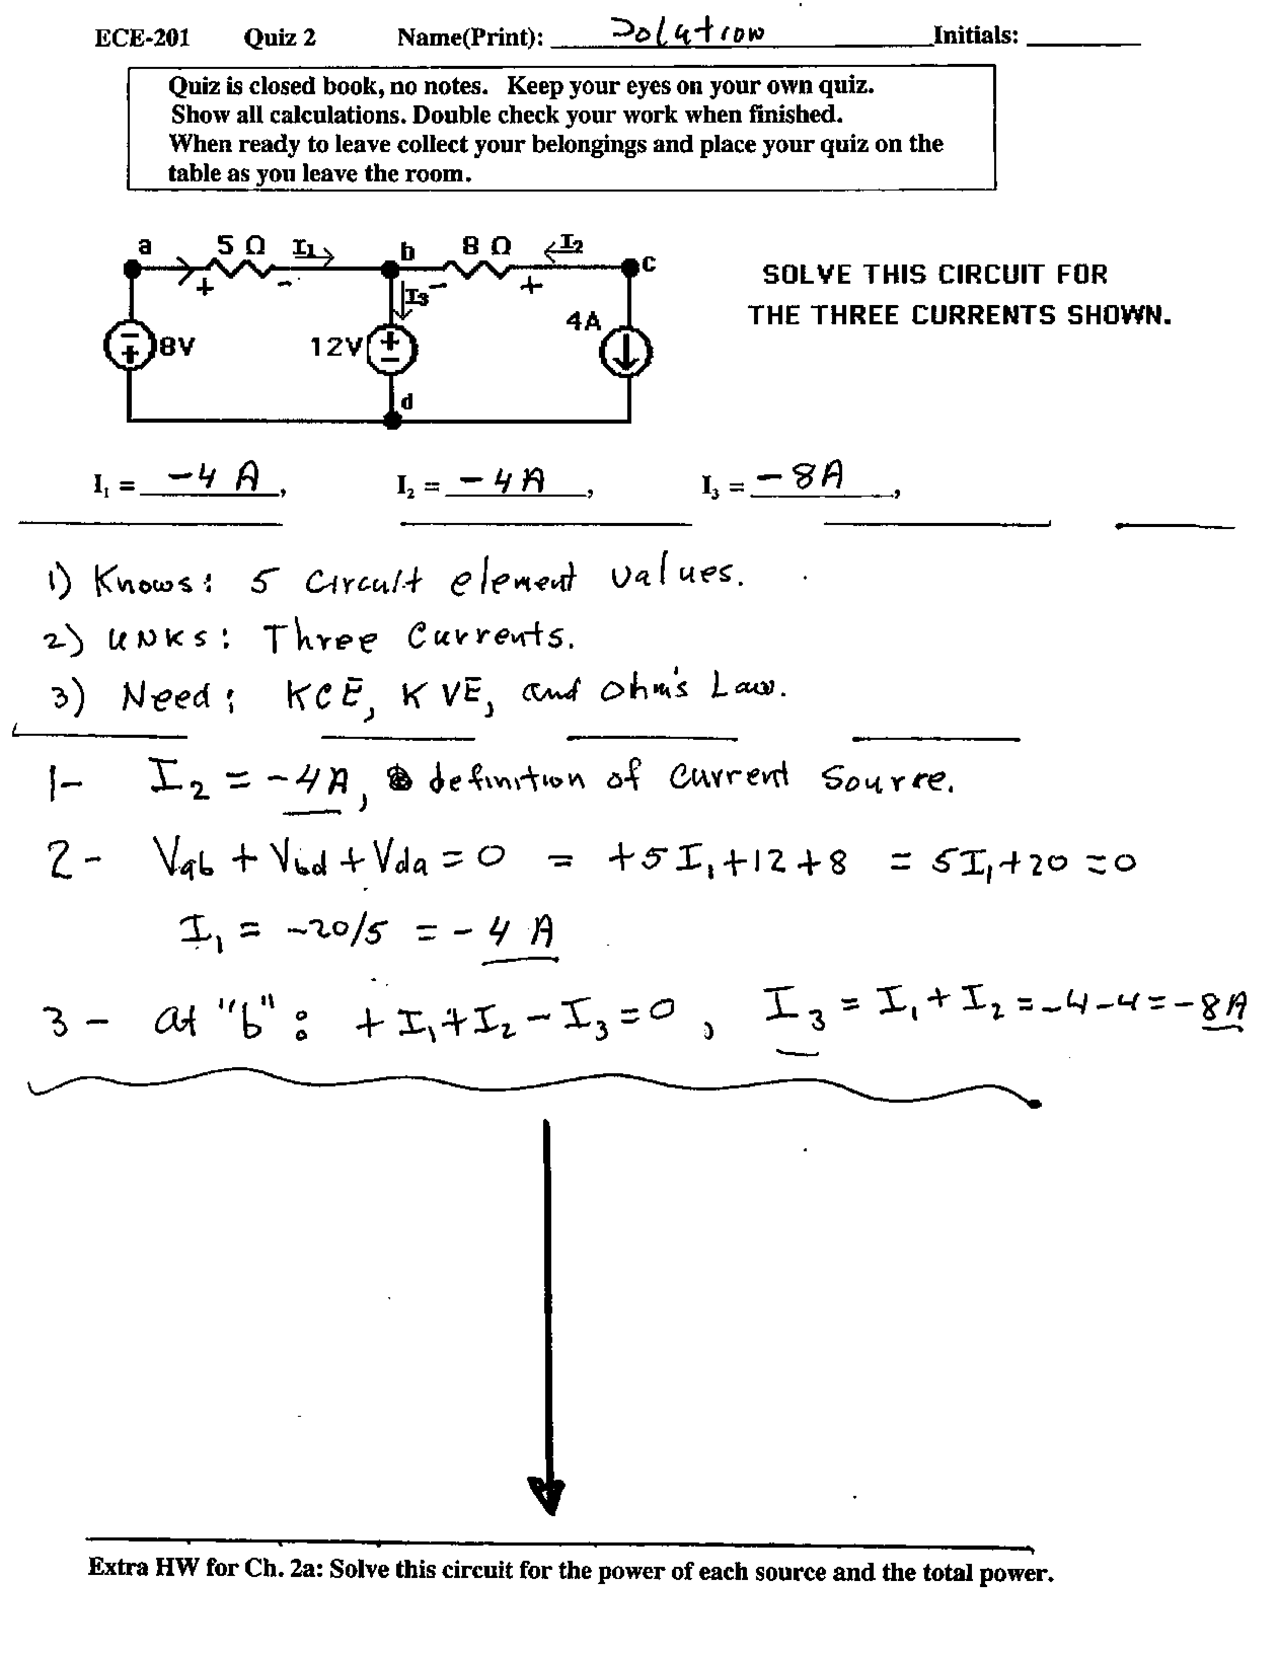 ECE-201 Quiz 2 Name(Print): Solution Initials:
Quiz is closed book, no notes. Keep your eyes on your own quiz.
Show all calculations. Double check your work when finished.
When ready to leave collect your belongings and place your quiz on the
table as you leave the room.
a 5 Ω I₁ b 8 Ω I₂ c
+ - I₃ - +
SOLVE THIS CIRCUIT FOR
THE THREE CURRENTS SHOWN.
- + 8V 12V + - 4A
d
I₁ = -4 A, I₂ = -4A, I₃ = -8A,
1) Knows: 5 Circuit element values.
2) UNKS: Three Currents.
3) Need: KCE, KVE, and Ohm's Law.
1- I₂ = -4A, definition of Current Source.
2- Vab + Vbd + Vda = 0 = +5I₁+12+8 = 5I₁+20 = 0
I₁ = -20/5 = -4 A
3- at "b": +I₁+I₂-I₃=0, I₃ = I₁+I₂ = -4-4 = -8A
Extra HW for Ch. 2a: Solve this circuit for the power of each source and the total power.